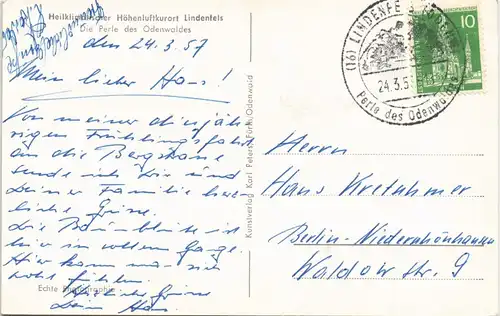 Heilklimatischer Höhenluftkurort Lindenfels
Die Perle des Odenwaldes
den 24.3.57
Mein lieber Hans!
Von meiner diesjäh-
rigen Frühlingsfahrt
an die Bergstrasse
sende ich Dir und
Deiner Familie herz-
liche Grüsse.
Die Baumblüte ist
hier in vollem Gange.
Hier kann man sich
wohl fühlen.
Herzliche Grüsse
Dein Hans.
Echte Photographie
Kunstverlag Karl Peters, Fürth/Odenwald
(16) LINDENFE
24.3.5
Perle des Odenwaldes
10
Herrn
Hans Kretschmer
Berlin-Niederschönhausen
Waldow Str. 9